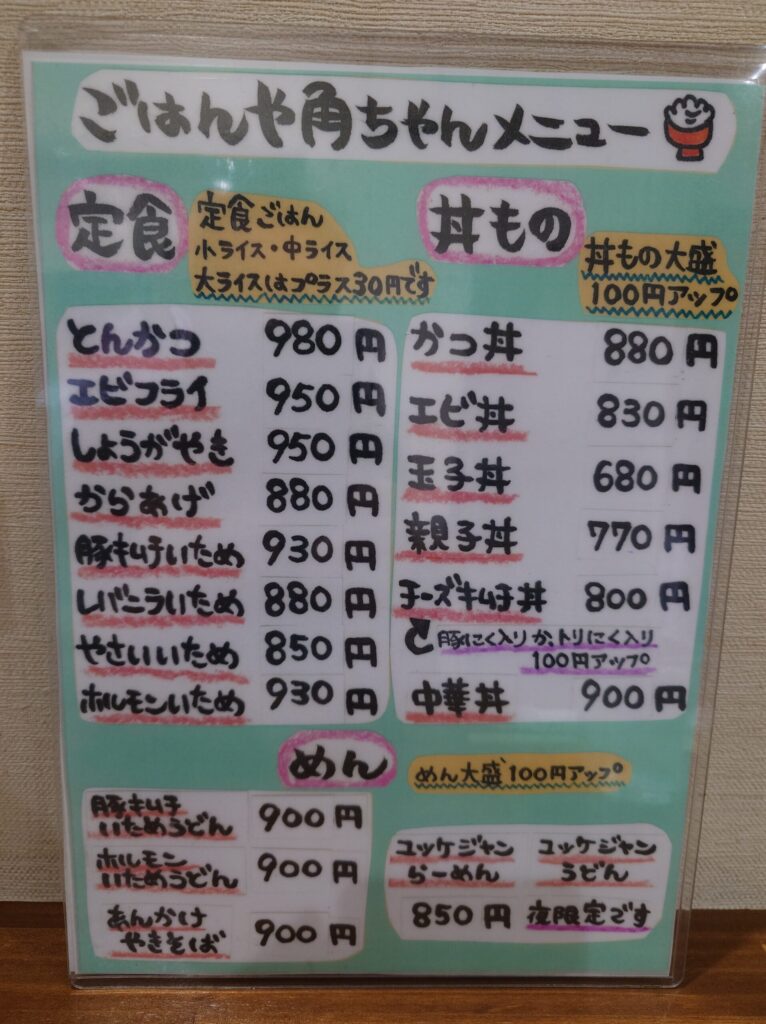 ごはんや角ちゃんメニュー
定食
定食ごはん
小ライス・中ライス
大ライスはプラス30円です
とんかつ 980円
エビフライ 950円
しょうがやき 950円
からあげ 880円
豚キムチいため 930円
レバニラいため 880円
やさいいため 850円
ホルモンいため 930円
丼もの
丼もの大盛
100円アップ
かつ丼 880円
エビ丼 830円
玉子丼 680円
親子丼 770円
チーズキムチ丼 800円
豚にく入りか、トリにく入り
100円アップ
中華丼 900円
めん
めん大盛100円アップ
豚キムチ
いためうどん 900円
ホルモン
いためうどん 900円
あんかけ
やきそば 900円
ユッケジャン
らーめん
ユッケジャン
うどん
850円 夜限定です